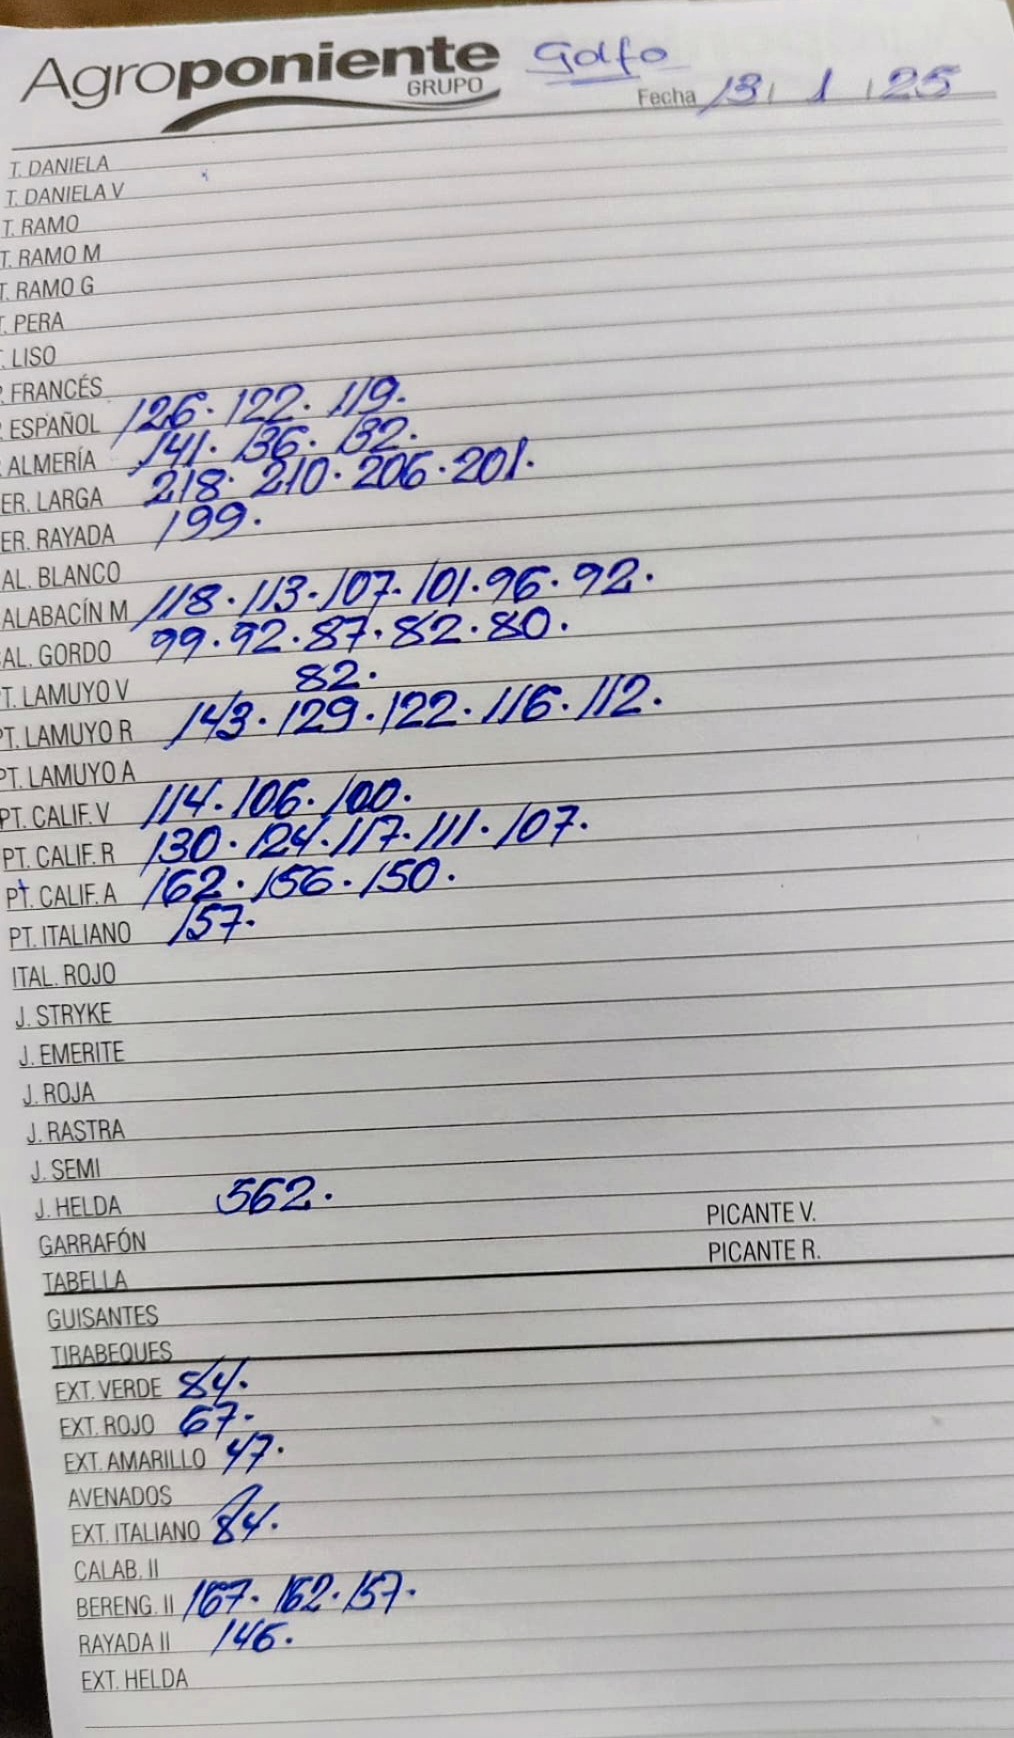 Agroponiente Golfo
GRUPO
Fecha 13 / 1 / 25
T. DANIELA
T. DANIELA V
T. RAMO
T. RAMO M
T. RAMO G
T. PERA
. LISO
P. FRANCÉS
P. ESPAÑOL 126. 122. 119.
P. ALMERÍA 141. 136. 132.
ER. LARGA 218. 210. 206. 201.
ER. RAYADA 199.
AL. BLANCO
ALABACÍN M 118. 113. 107. 101. 96. 92.
AL. GORDO 99. 92. 87. 82. 80.
PT. LAMUYO V 82.
PT. LAMUYO R 143. 129. 122. 116. 112.
PT. LAMUYO A
PT. CALIF. V 114. 106. 100.
PT. CALIF. R 130. 124. 117. 111. 107.
PT. CALIF. A 162. 156. 150.
PT. ITALIANO 157.
ITAL. ROJO
J. STRYKE
J. EMERITE
J. ROJA
J. RASTRA
J. SEMI
J. HELDA 562.
PICANTE V.
GARRAFÓN
PICANTE R.
TABELLA
GUISANTES
TIRABEQUES
EXT. VERDE 84.
EXT. ROJO 67.
EXT. AMARILLO 47.
AVENADOS
EXT. ITALIANO 84.
CALAB. II
BERENG. II 167. 162. 157.
RAYADA II 146.
EXT. HELDA